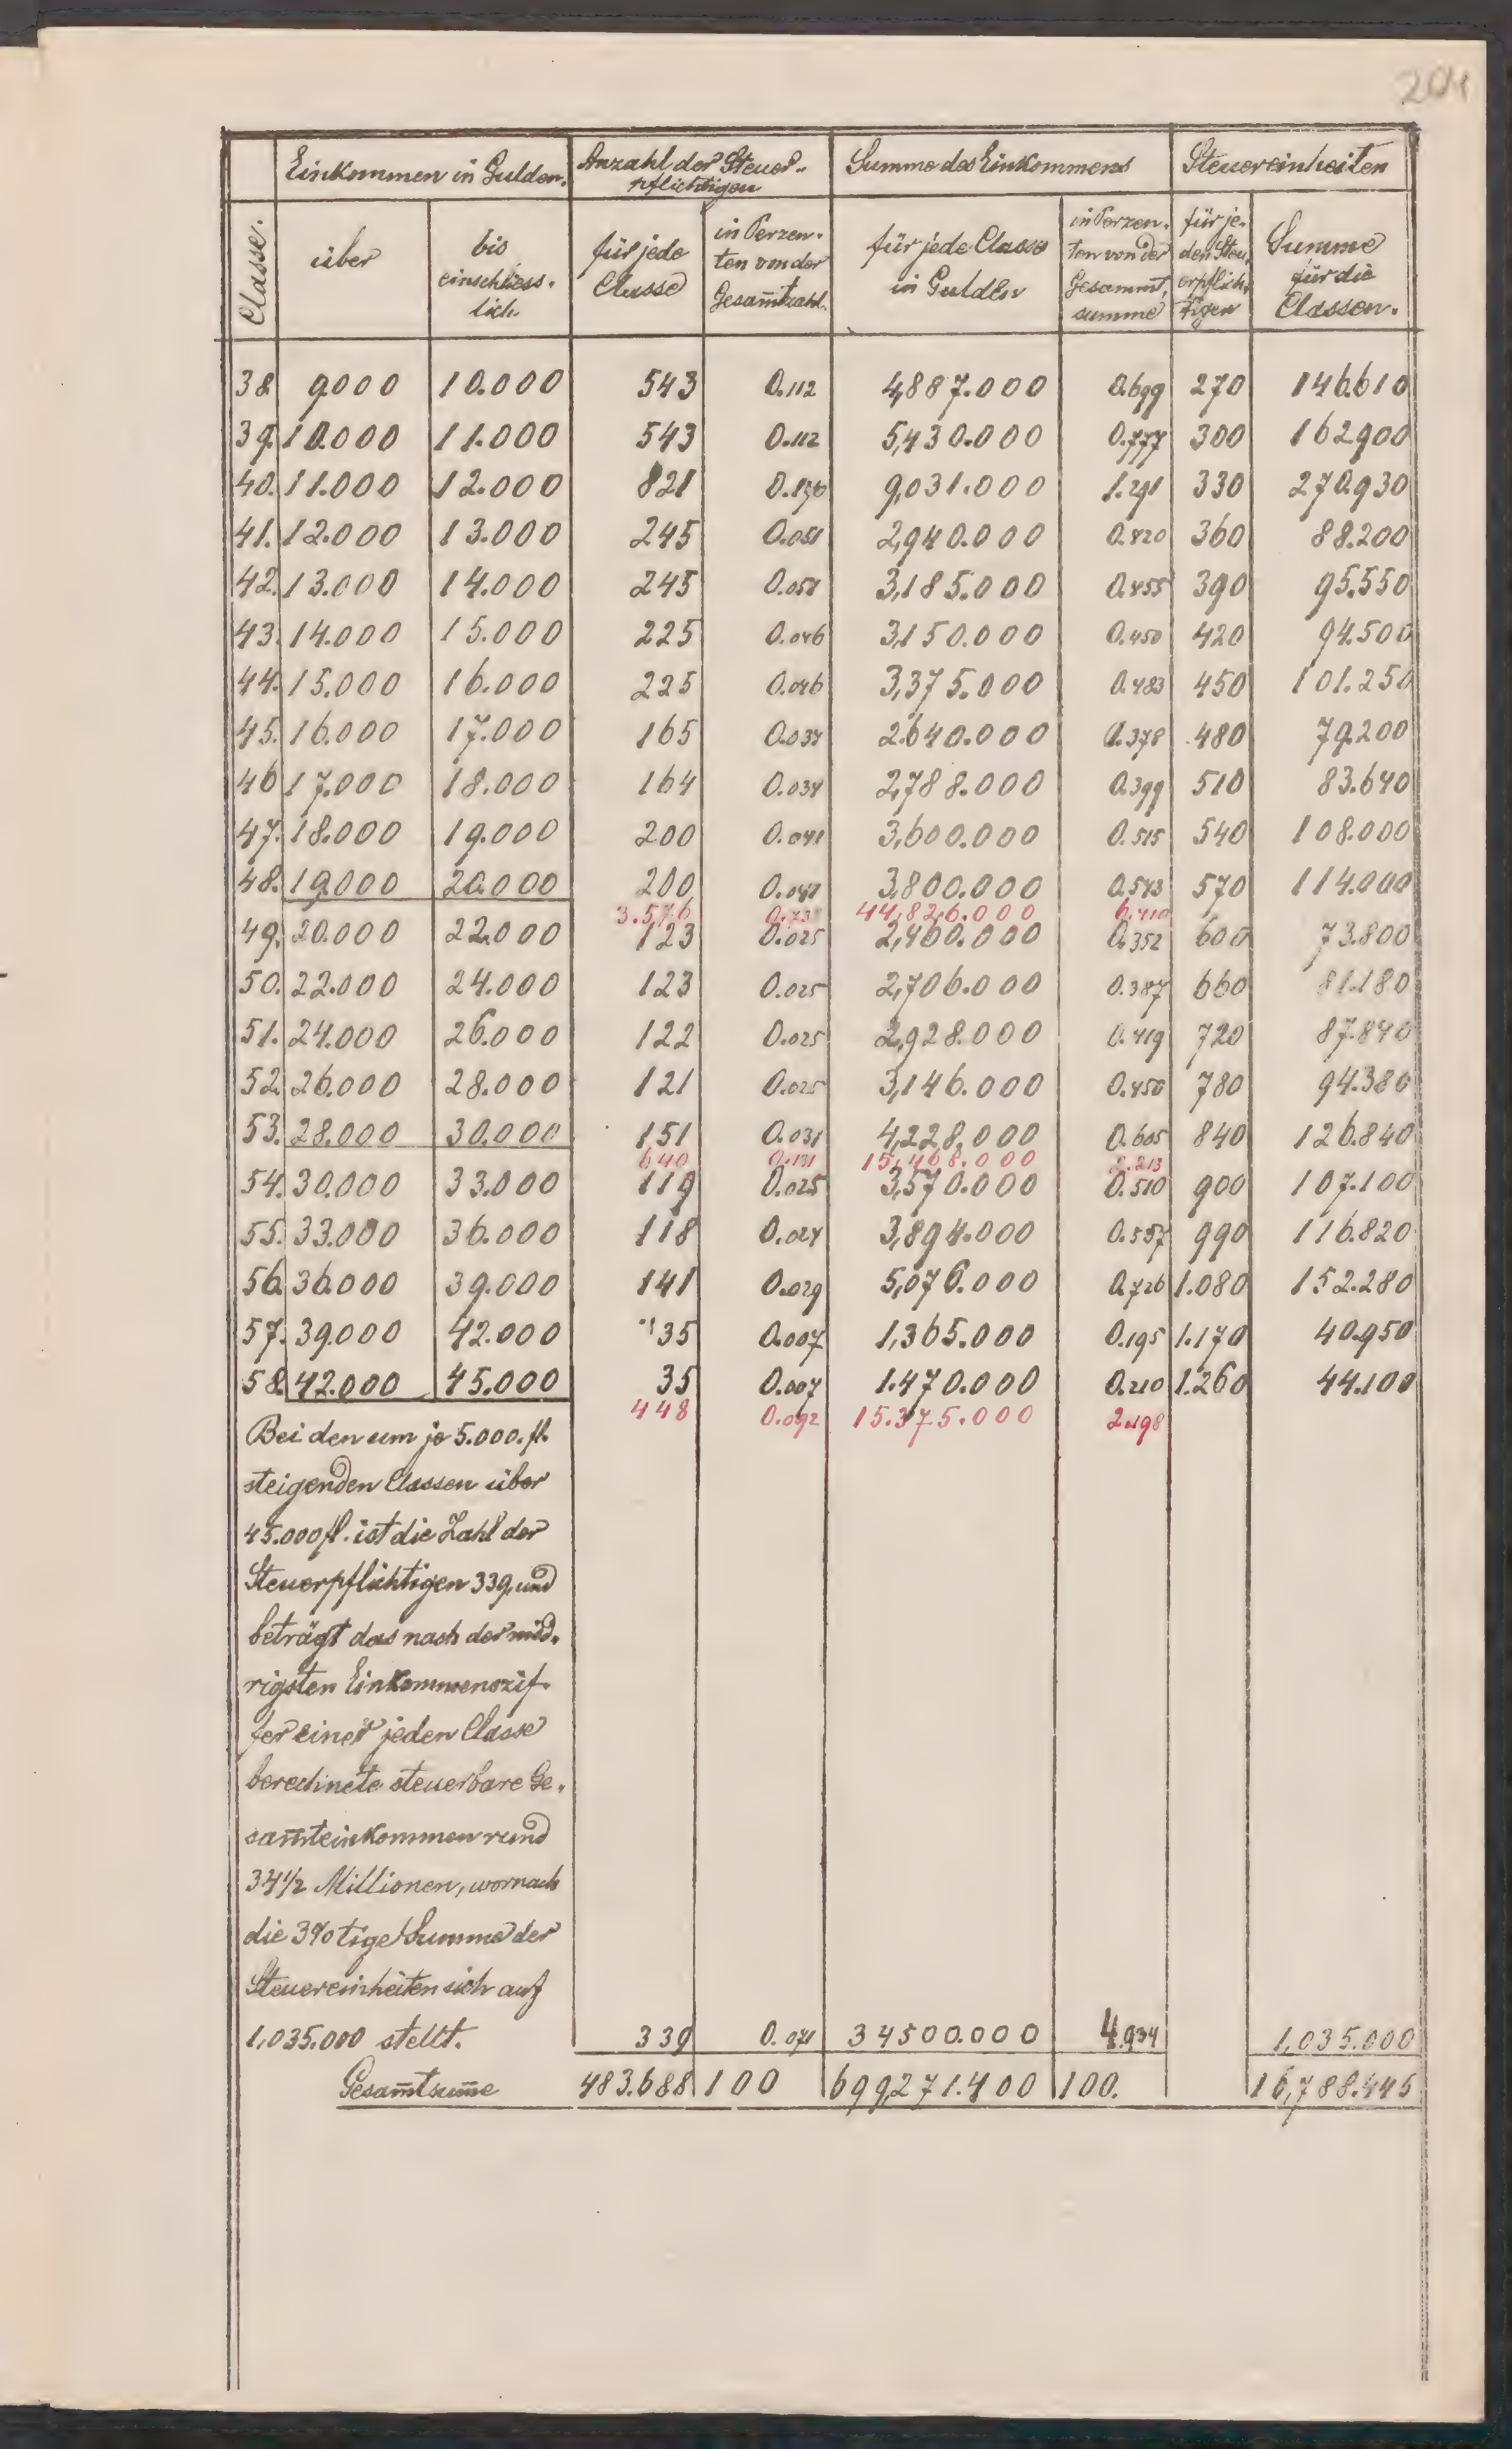 204
Einkommen in Gulden. Anzahl der Steuer- Summe des Einkommens Steuereinheiten
pflichtigen
Classe. über bis einschliess- lich für jede Classe in Perzen- ten von der Gesam̅tzahl. für jede Classe in Gulden in Perzen- ten von der Gesammt- summe für je- den Steu- erpflich- tigen Summe für die Classen.
38 9000 10.000 543 0.112 4,887.000 0.699 270 146610
39. 10.000 11.000 543 0.112 5,430.000 0.777 300 162900
40. 11.000 12.000 821 0.170 9,031.000 1.291 330 270.930
41. 12.000 13.000 245 0.051 2,940.000 0.420 360 88.200
42. 13.000 14.000 245 0.051 3,185.000 0.455 390 95.550
43. 14.000 15.000 225 0.046 3,150.000 0.450 420 94.500
44. 15.000 16.000 225 0.046 3,375.000 0.483 450 101.250
45. 16.000 17.000 165 0.034 2.640.000 0.378 480 79.200
46 17.000 18.000 164 0.034 2,788.000 0.399 510 83.640
47. 18.000 19.000 200 0.041 3,600.000 0.515 540 108.000
48. 19.000 20.000 200 0.041 3,800.000 0.543 570 114.000
3.576 44,826.000 6.410
49. 20.000 22.000 123 0.025 2,460.000 0.352 600 73.800
50. 22.000 24.000 123 0.025 2,706.000 0.387 660 81.180
51. 24.000 26.000 122 0.025 2,928.000 0.419 720 87.840
52. 26.000 28.000 121 0.025 3,146.000 0.450 780 94.380
53. 28.000 30.000 151 0.031 4,228,000 0.605 840 126.840
640 0.131 15,468.000 2.213
54. 30.000 33.000 119 0.025 3,570.000 0.510 900 107.100
55. 33.000 36.000 118 0.024 3,894.000 0.557 990 116.820
56. 36.000 39.000 141 0.029 5,076.000 0.726 1.080 152.280
57. 39.000 42.000 35 0.007 1,365.000 0.195 1.170 40.950
58. 42.000 45.000 35 0.007 1.470.000 0.210 1.260 44.100
448 0.092 15.375.000 2.198
Bei den um je 5.000. fl.
steigenden Classen über
45.000 fl. ist die Zahl der
Steuerpflichtigen 339, und
beträgt das nach der nied-
rigsten Einkommenszif-
fer einer jeden Classe
berechnete steuerbare Ge-
sam̅teinkommen rund
34½ Millionen, wornach
die 3% tige Summe der
Steuereinheiten sich auf
1,035.000 stellt. 339 0.071 34500.000 4.934 1,035.000
Gesam̅tsum̅e 483.688 100 699,271.400 100. 16,788.445